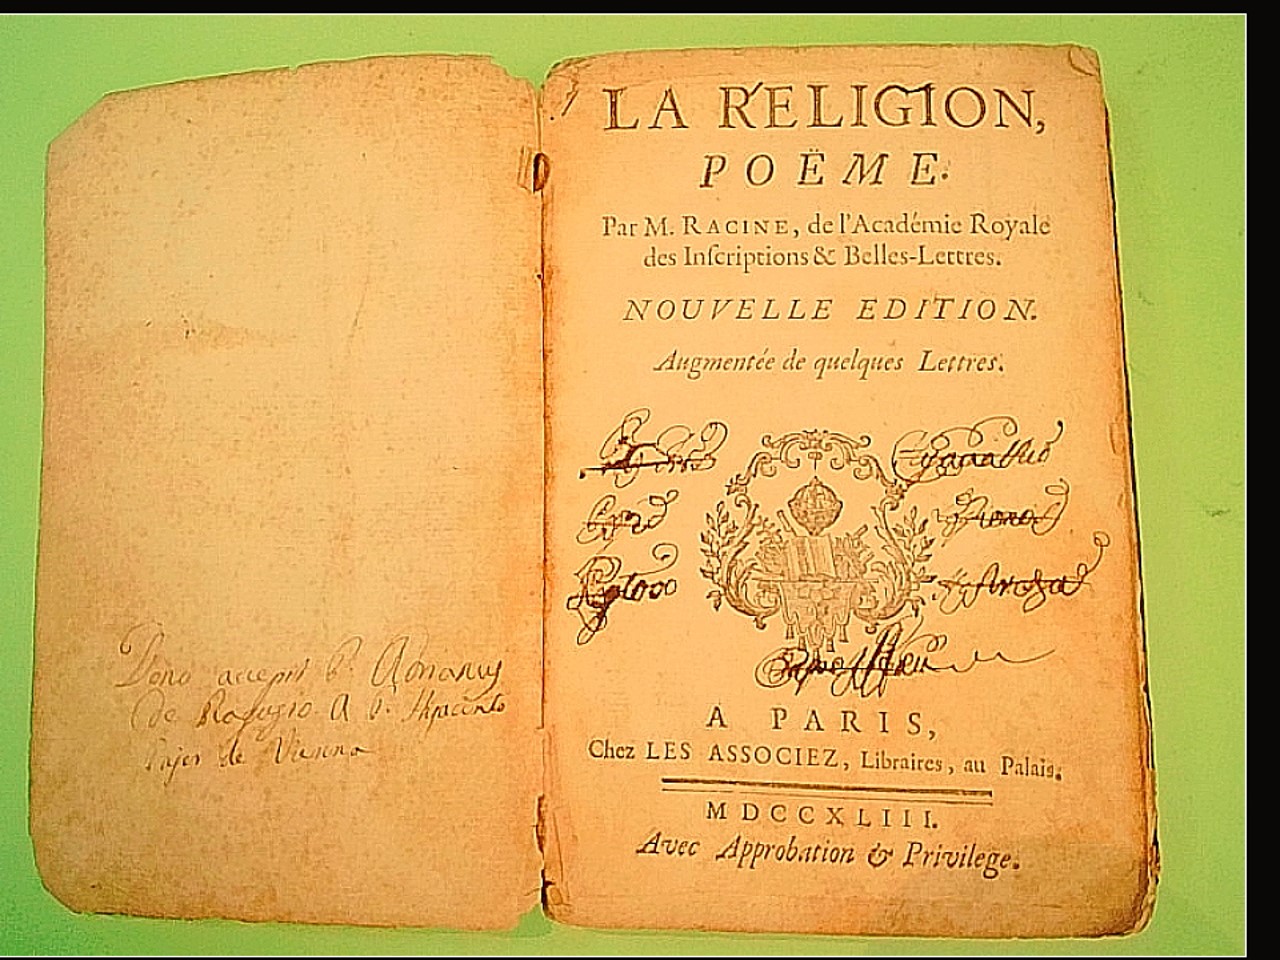 Dono accepit P. Adrianus
de Refugio A P. Hyacinto
de Vienna
LA RELIGION,
POËME.
Par M. RACINE, de l'Académie Royale
des Inſcriptions & Belles-Lettres.
NOUVELLE EDITION.
Augmentée de quelques Lettres.
A PARIS,
Chez LES ASSOCIEZ, Libraires, au Palais.
MDCCXLIII.
Avec Approbation & Privilege.